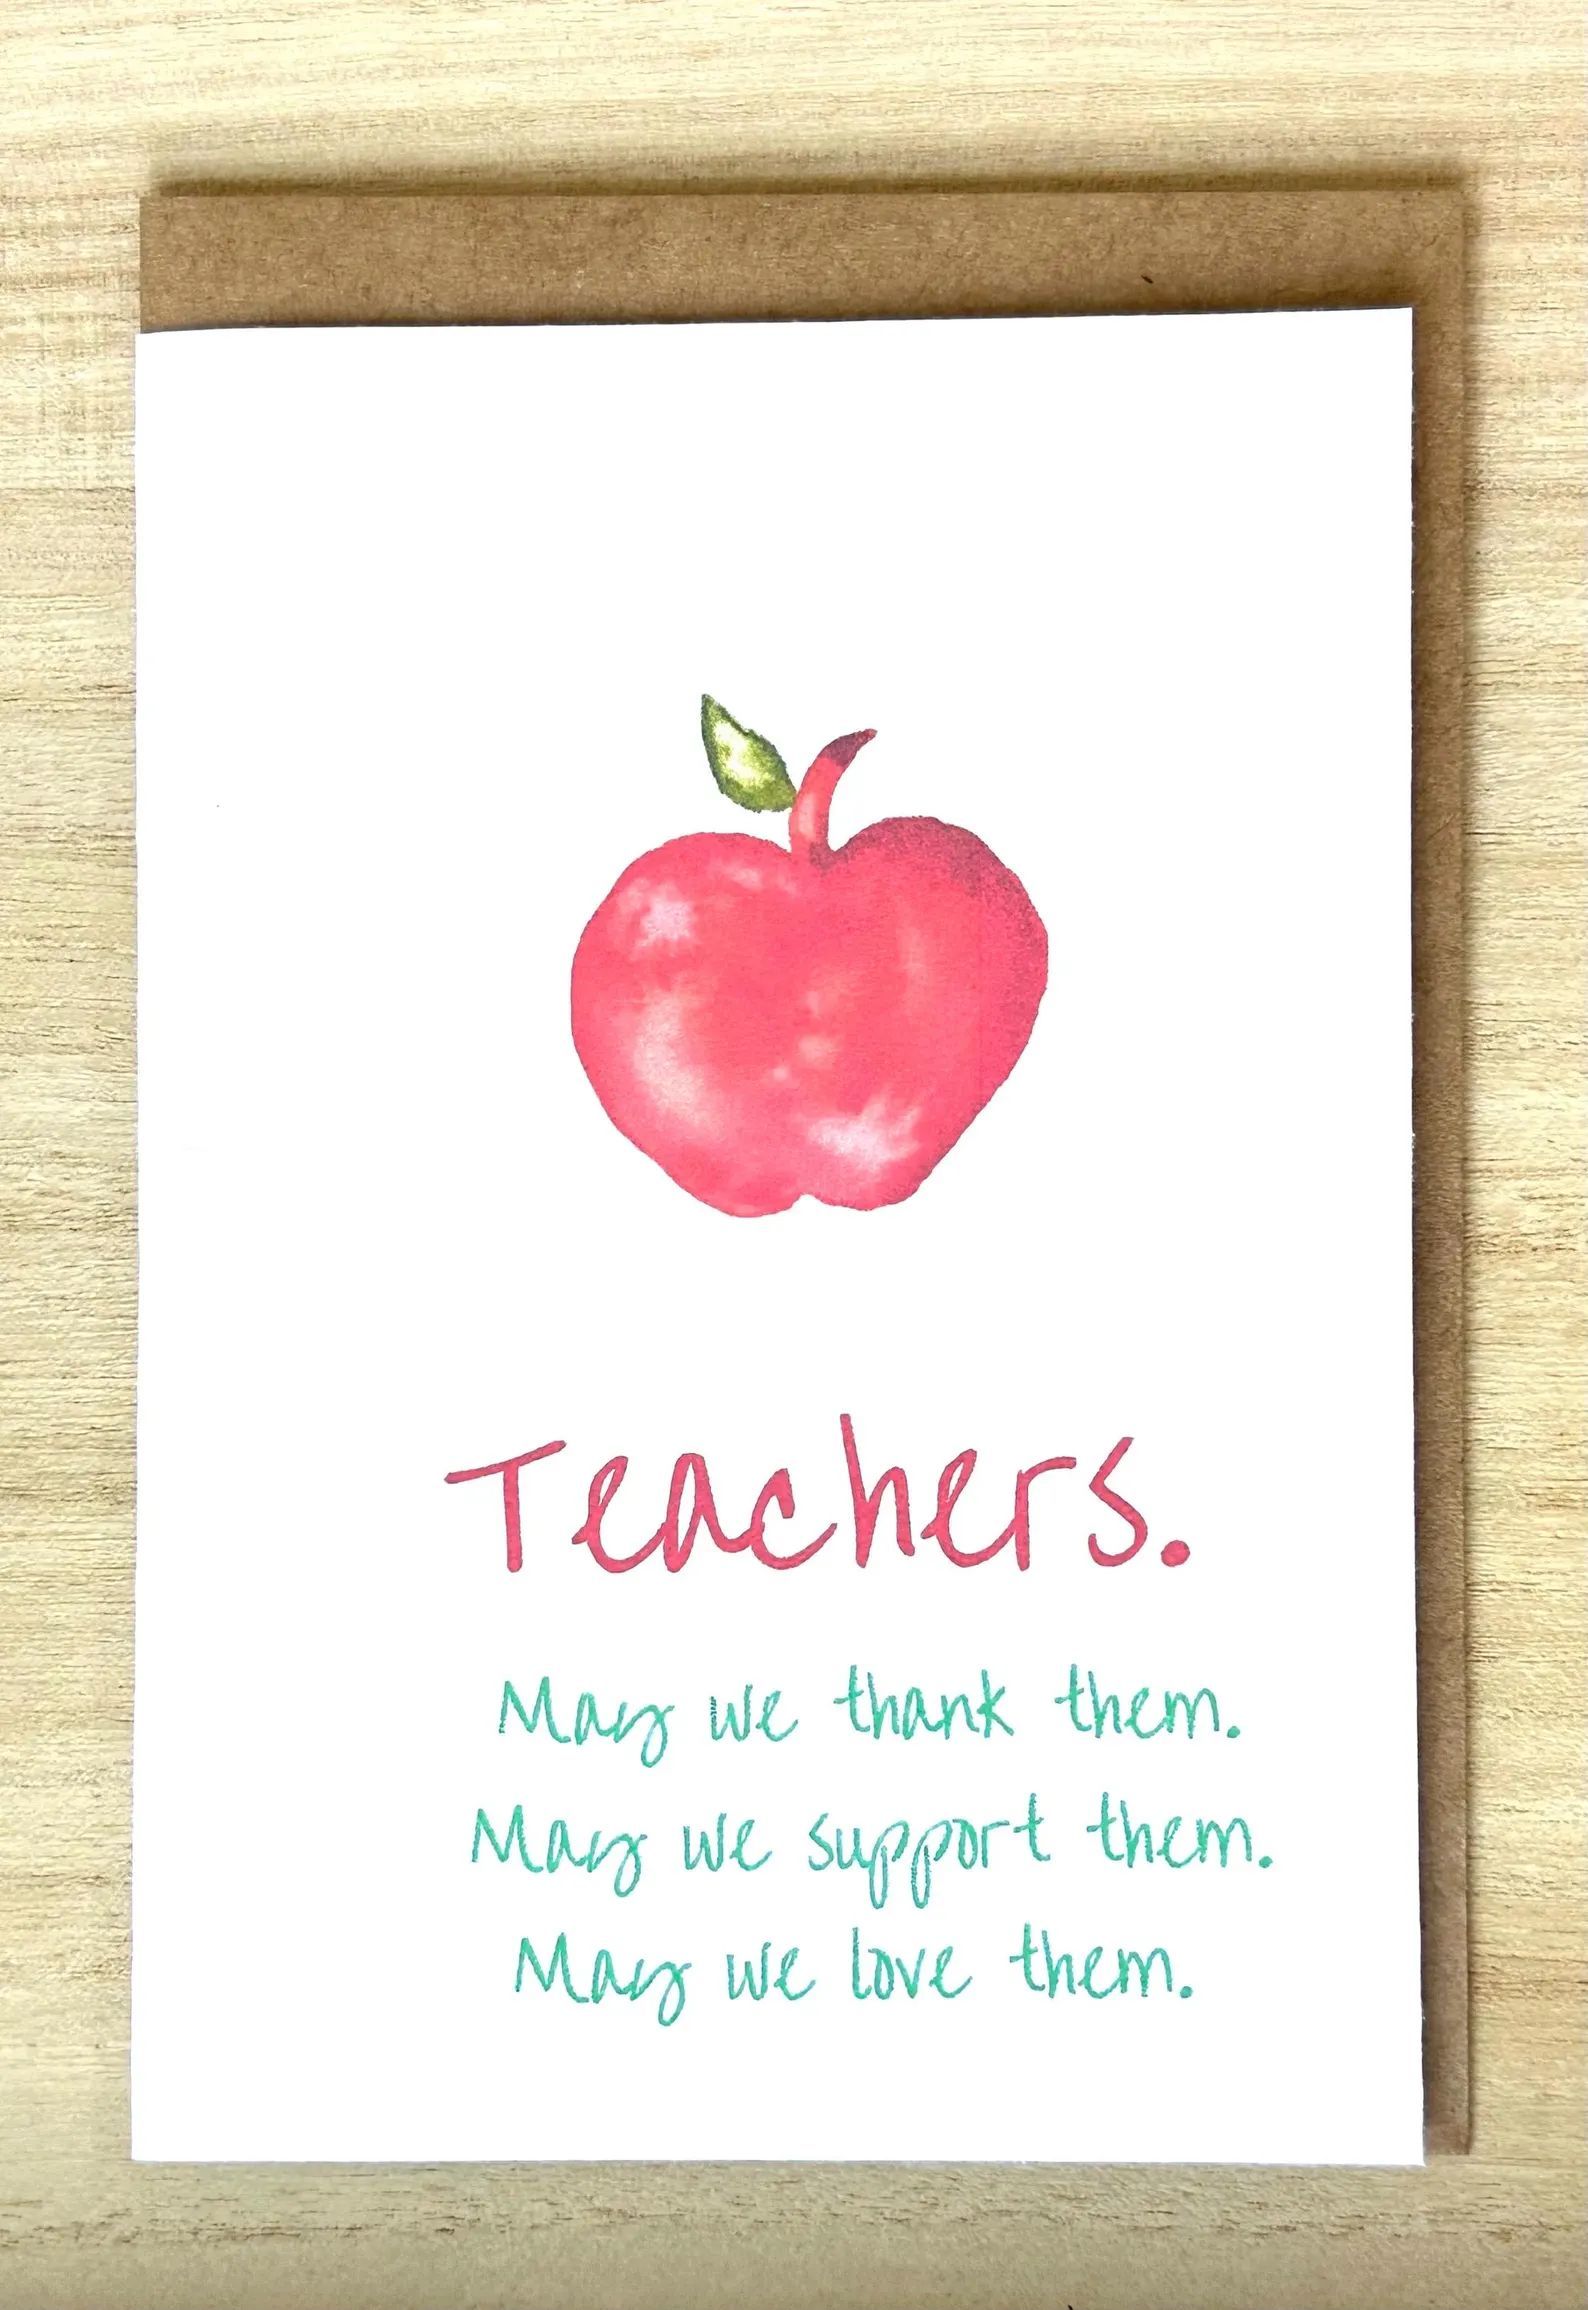 Teachers.
May we thank them.
May we support them.
May we love them.